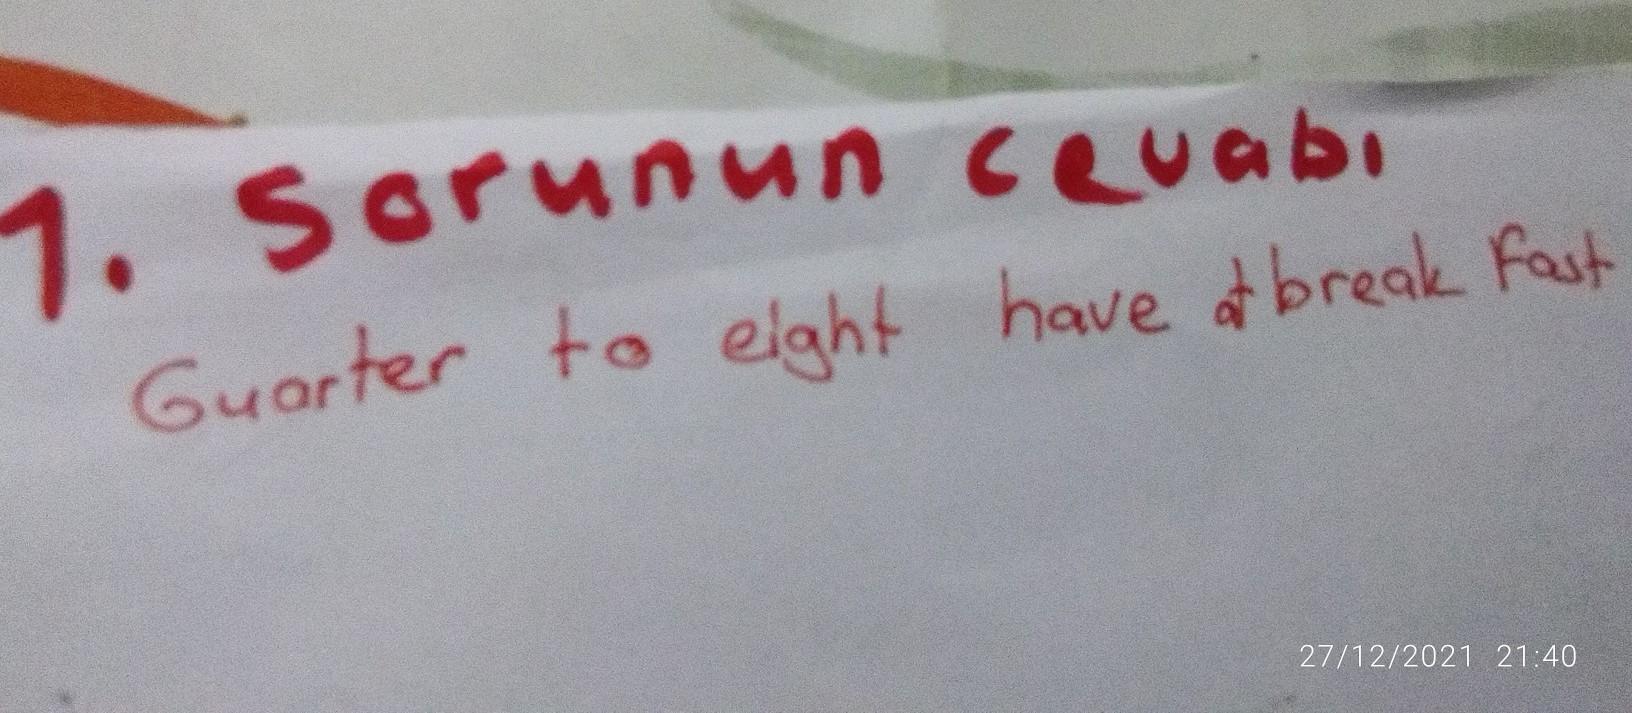 1. Sorunun cevabı
Guarter to eight have at break Fast
27/12/2021 21:40